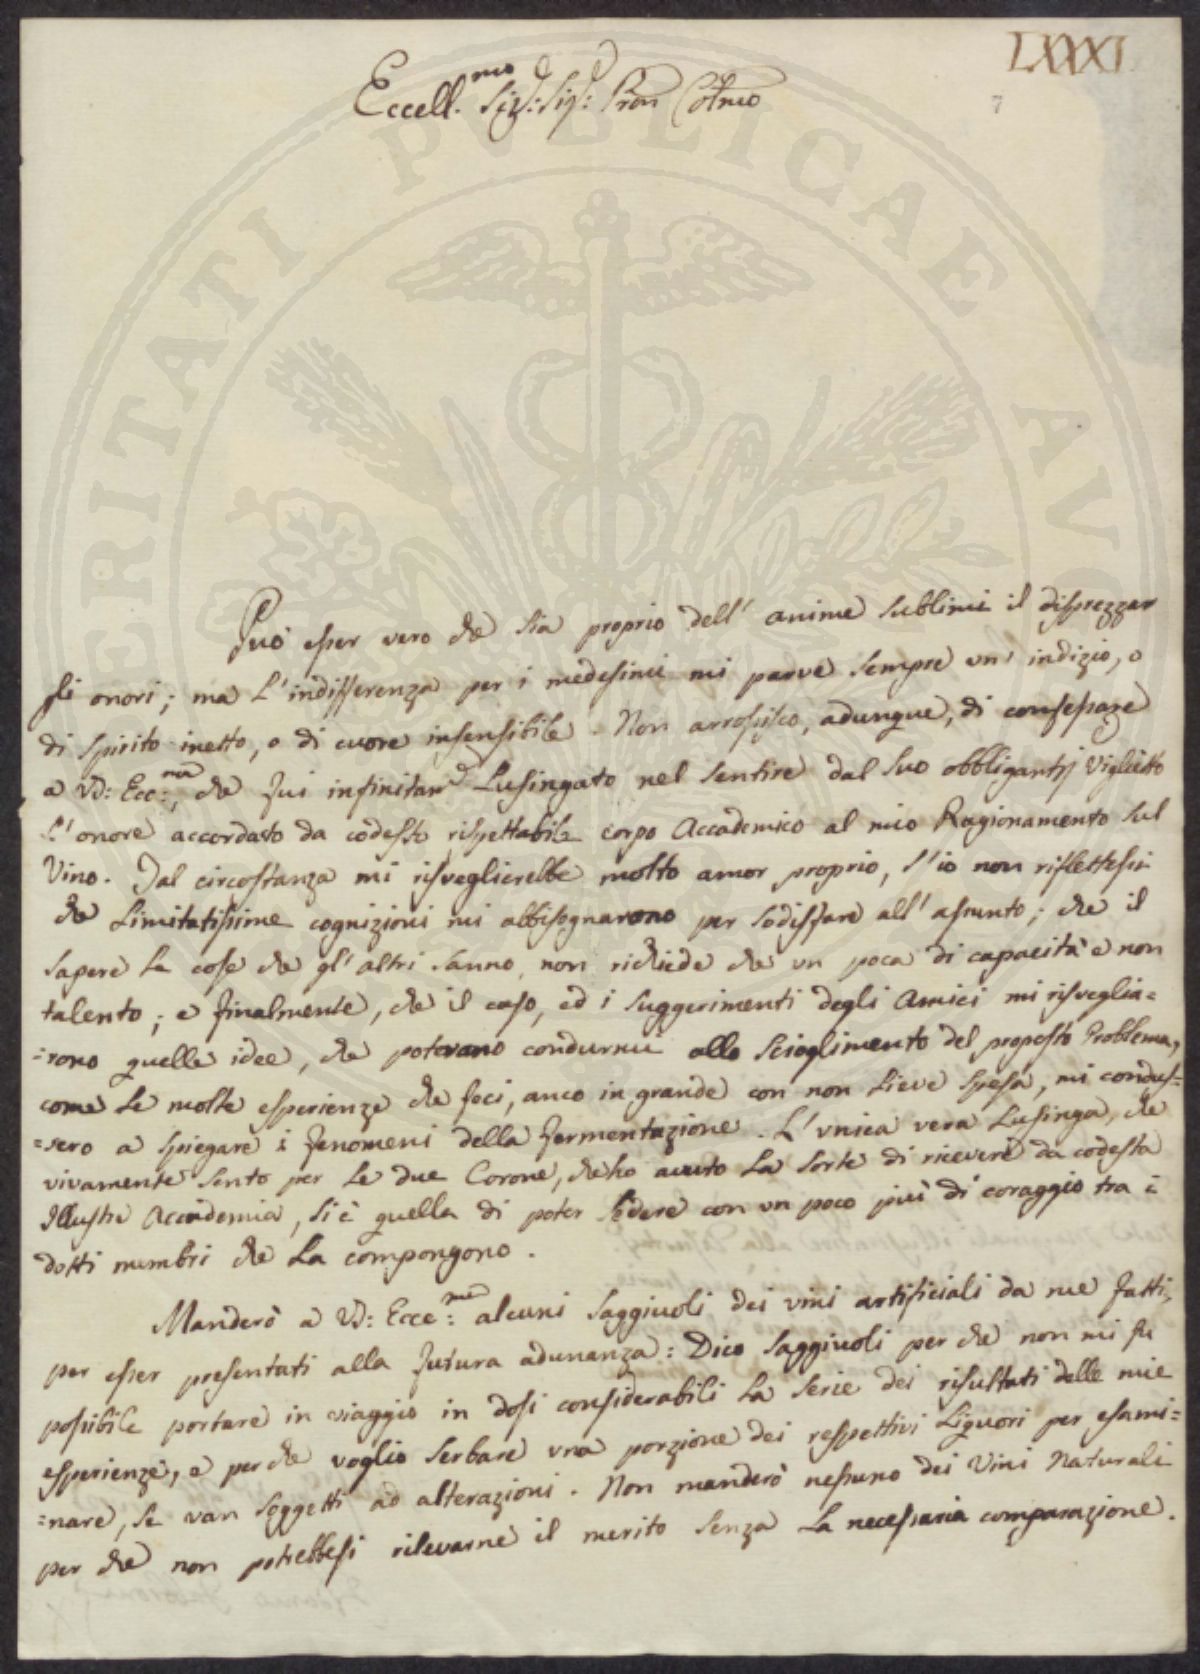 LXXXI
7
Eccell.mo Sig: Sig: Pron Colmo
Può esser vero che sia proprio dell' anime sublimi il disprezzar
gli onori; ma l'indifferenza per i medesimi mi parve sempre un' indizio, o
di spirito inetto, o di cuore insensibile. Non arrossisco, adunque, di confessare
a VD: Ecc:ma, che fui infinitam lusingato nel sentire dal suo obbligantis Viglietto
l'onore accordato da codesto rispettabile corpo Accademico al mio Ragionamento sul
Vino. Tal circostanza mi risveglierebbe molto amor proprio, s'io non riflettessi
che limitatissime cognizioni mi abbisognarono per sodisfare all' assunto; che il
sapere le cose che gl' altri sanno, non richiede che un poca di capacità e non
talento; e finalmente, che il caso, ed i suggerimenti degli Amici mi risveglia=
=rono quelle idee, che potevano condurmi allo scioglimento del proposto Problema,
come le molte esperienze che feci, anco in grande con non lieve spesa, mi condus=
=sero a spiegare i fenomeni della fermentazione. L'unica vera lusinga, che
vivamente sento per le due Corone, che ho avuto la sorte di ricevere da codesta
Illustre Accademia, si è quella di poter sedere con un poco più di coraggio tra i
dotti membri che la compongono.
Manderò a VD: Ecce:ma alcuni saggiuoli dei vini artificiali da me fatti,
per esser presentati alla futura adunanza: Dico saggiuoli per che non mi fu
possibile portare in viaggio in dosi considerabili la serie dei risultati delle mie
esperienze, e per che voglio serbare una porzione dei respettivi liquori per esami=
=nare, se van soggetti ad alterazioni. Non manderò nessuno dei Vini Naturali
per che non potrebbesi rilevarne il merito senza la necessaria comparazione.